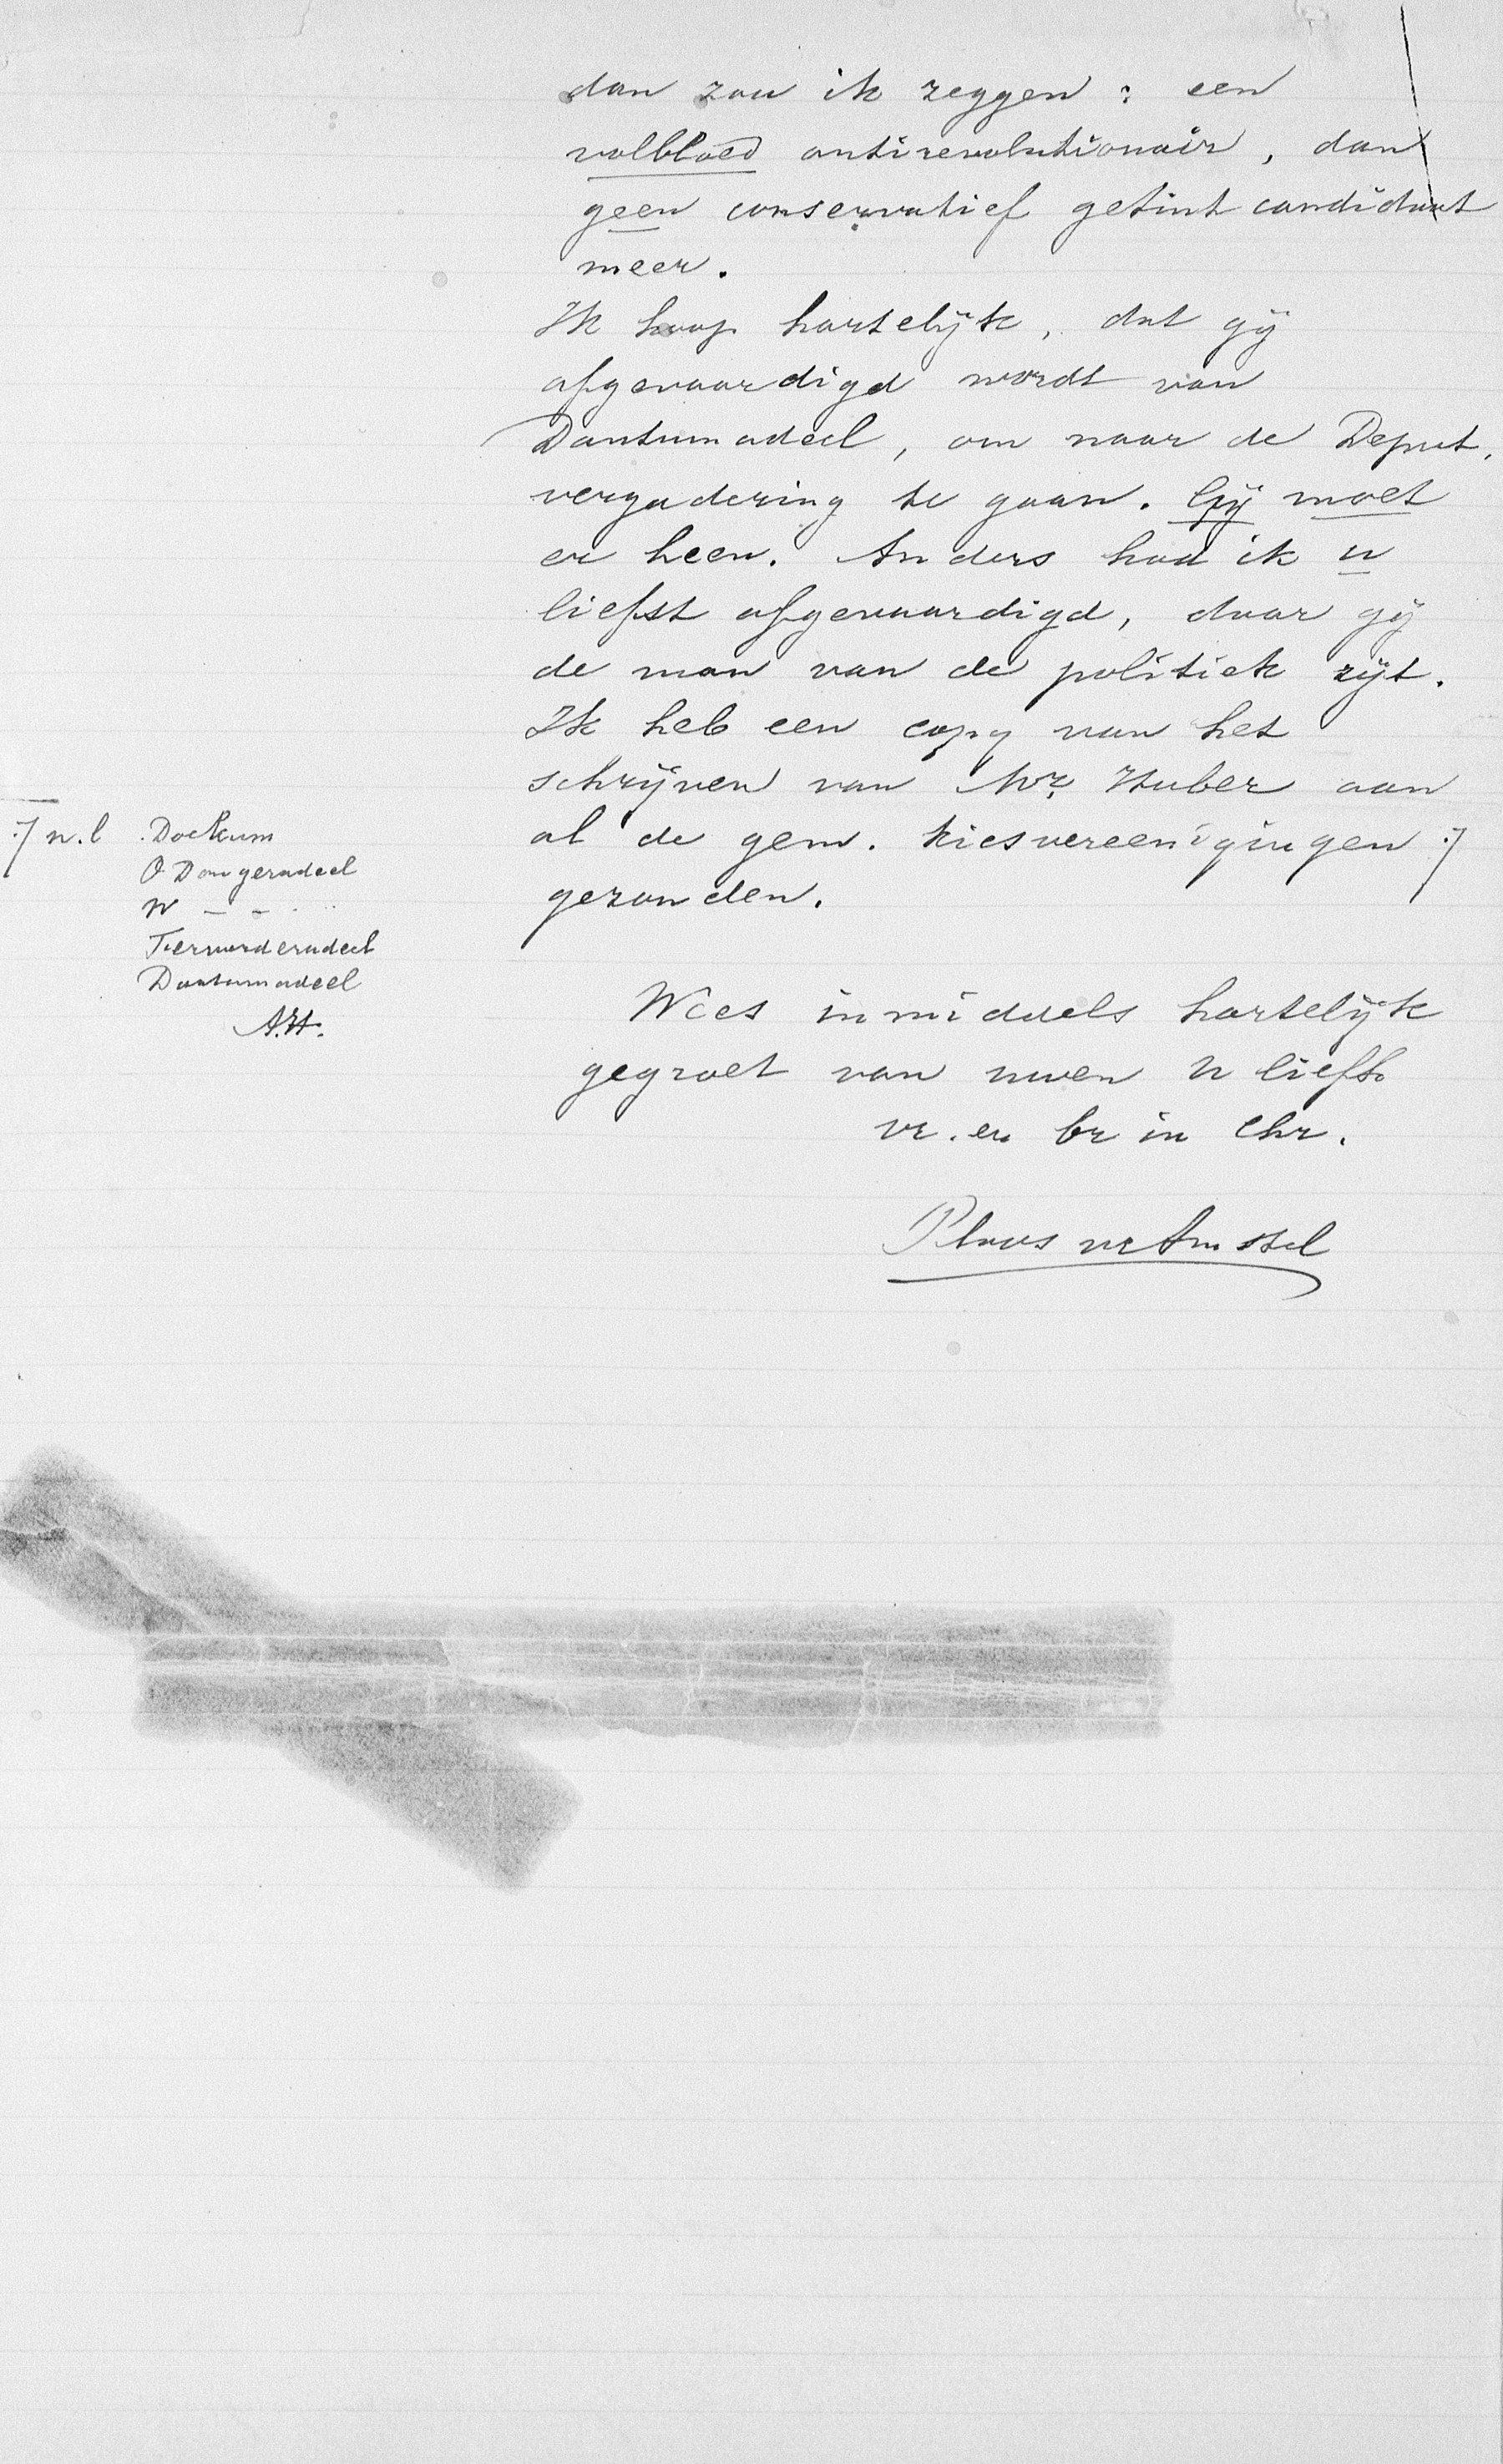 dan zou ik zeggen : een
volbloed antirevolutionair, dan
geen conservatief getint candidaat
meer.
Ik hoop hartelijk, dat gij
afgevaardigd wordt van
Dantumadeel, om naar de Deput.
vergadering te gaan. Gij moet
er heen. Anders had ik u
liefst afgevaardigd, daar gij
de man van de politiek zijt.
Ik heb een copy van het
schrijven van Mr. Huber aan
al de gem. kiesvereenigingen :/
gezonden.
:/ n.l. Dockum
O Dongeradeel
W – –
Ferwerderadeel
Dantumadeel
A.H.
Wees inmiddels hartelijk
gegroet van uwen U liefh.
vr. en br in Chr.
Ploos v Amstel